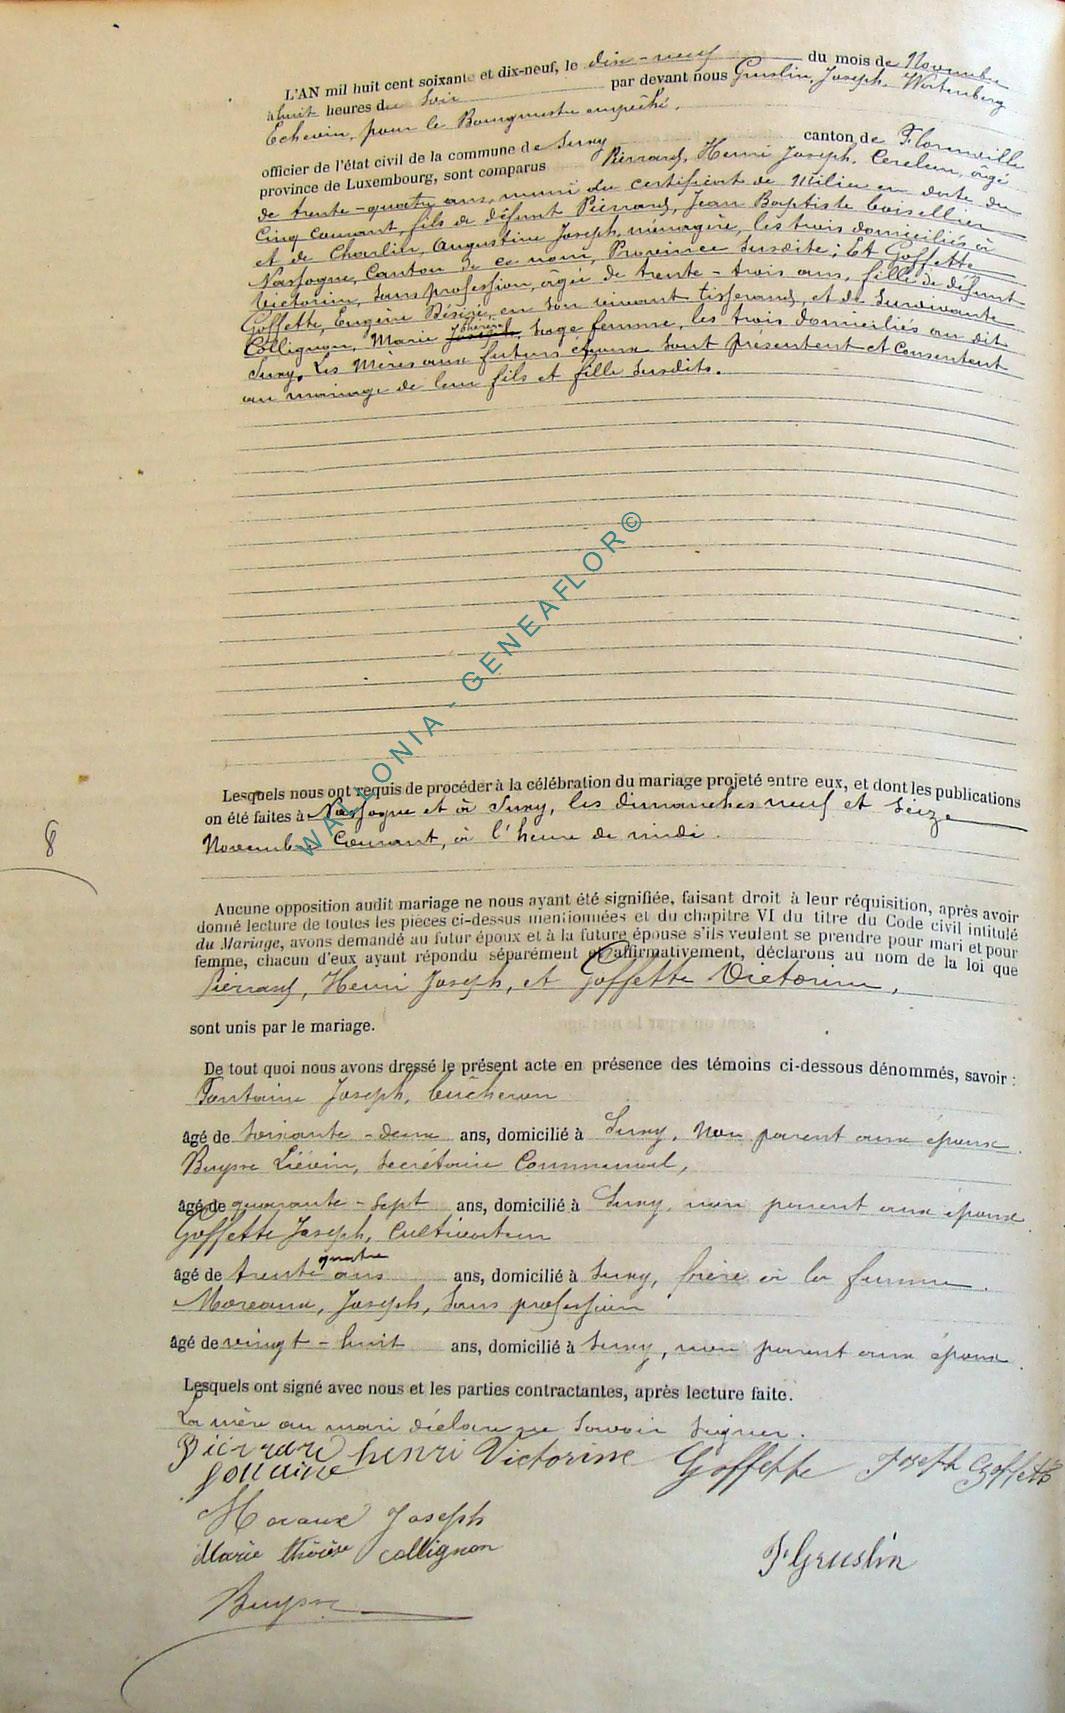 L'AN mil huit cent soixante et dix-neuf, le dix-neuf du mois de Novembre
à huit heures du Soir par devant nous Gruslin, Joseph, Wortenberg
Echevin, pour le Bourgmestre empêché,
officier de l'état civil de la commune de Suxy canton de Florenville
province de Luxembourg, sont comparus Pierrard, Henri Joseph, âgé
de trente-quatre ans, muni du certificat de Milice en date du
Cinq Courant, fils de défunt Pierrard, Jean Baptiste boisellier
et de Charlin, Augustine Joseph, ménagère, les trois domiciliés à
Nassogne, Canton de ce nom, Province Susdite; Et Goffette
Victorine, Sans profession, âgée de trente-trois ans, fille de défunt
Goffette, Eugène Désiré, en Son vivant tisserand, et de Survivante
Collignon, Marie Thérèse Joseph, Sage femme, les trois domiciliés au dit
Suxy. Les Mères aux futurs époux Sont présentent et Consentent
au mariage de leur fils et fille Susdits.
Lesquels nous ont requis de procéder à la célébration du mariage projeté entre eux, et dont les publications
on été faites à Nassogne et à Suxy, les dimanches neuf et Seize
Novembre Courant, à l'heure de midi.
8
Aucune opposition audit mariage ne nous ayant été signifiée, faisant droit à leur réquisition, après avoir
donné lecture de toutes les pièces ci-dessus mentionnées et du chapitre VI du titre du Code civil intitulé
du Mariage, avons demandé au futur époux et à la future épouse s'ils veulent se prendre pour mari et pour
femme, chacun d'eux ayant répondu séparément et affirmativement, déclarons au nom de la loi que
Pierrard, Henri Joseph, et Goffette Victorine,
sont unis par le mariage.
De tout quoi nous avons dressé le présent acte en présence des témoins ci-dessous dénommés, savoir :
Fontaine Joseph, bûcheron
âgé de Soixante-deux ans, domicilié à Suxy, Non parent aux époux.
Buysse Liévin, Secrétaire Communal,
âgé de quarante-Sept ans, domicilié à Suxy, non parent aux époux.
Goffette Joseph, Cultivateur
âgé de trente quatre ans ans, domicilié à Suxy, frère à la femme.
Moreaux, Joseph, Sans profession
âgé de vingt-huit ans, domicilié à Suxy, non parent aux époux.
Lesquels ont signé avec nous et les parties contractantes, après lecture faite.
La mère au mari déclare ne Savoir Signer.
Pierrard henri Victorine Goffette Joseph Goffette
fontaine
Moraux Joseph
Marie thérèse collignon
J Gruslin
Buysse
WALLONIA - GENEAFLOR©